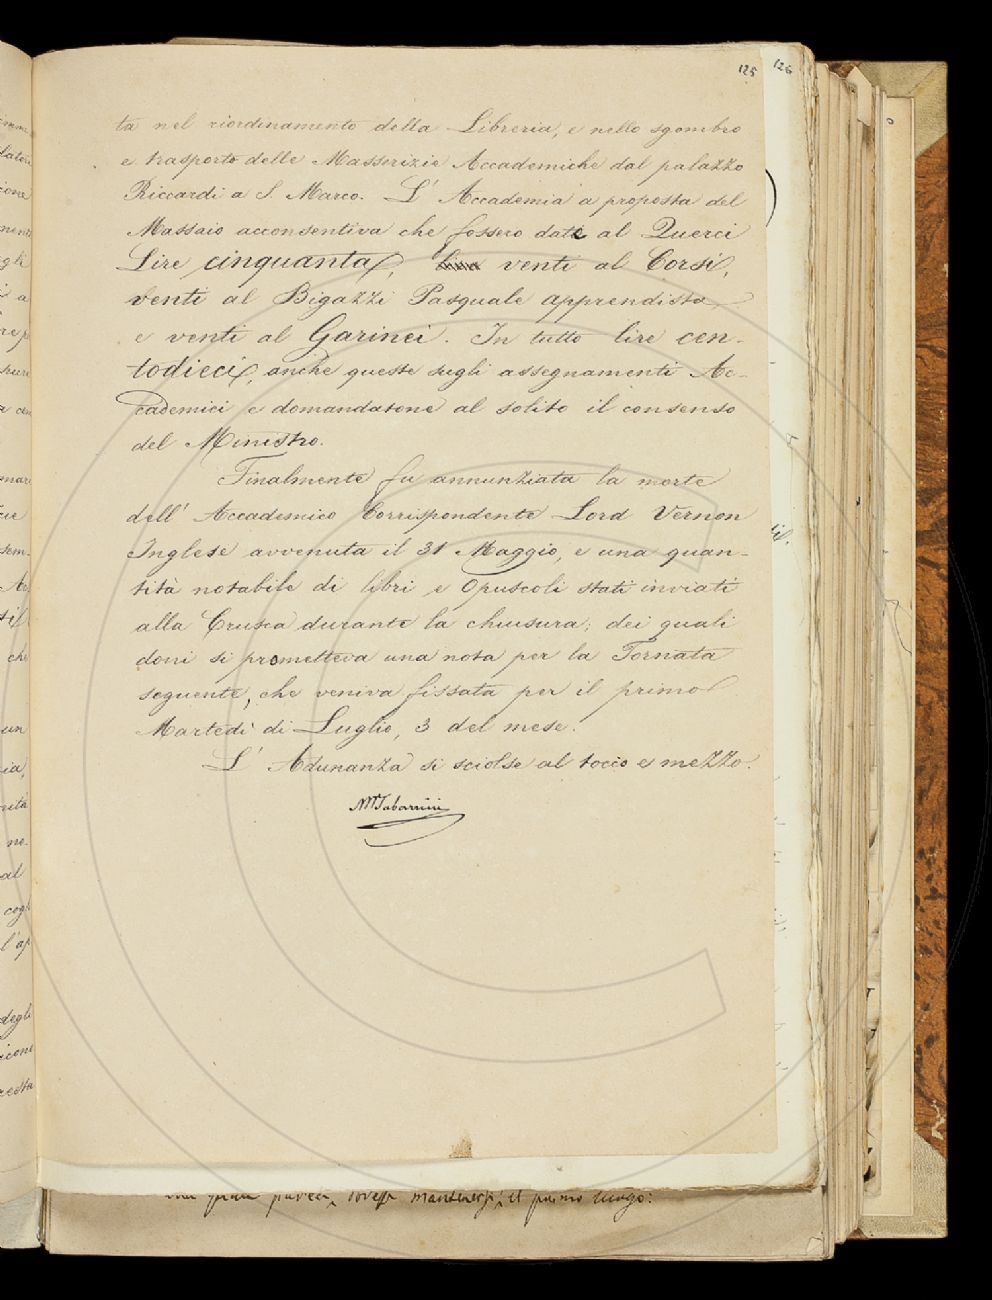 125 126
ta nel riordinamento della Libreria, e nello sgombro
e trasporto delle Masserizie Accademiche dal palazzo
Riccardi a S. Marco. L' Accademia a proposta del
Massaio acconsentiva che fossero date al Querci
Lire cinquanta, venti al Corsi,
venti al Bigazzi Pasquale apprendista
e venti al Garinei. In tutto lire cen-
todieci, anche queste sugli assegnamenti Ac-
cademici e domandatone al solito il consenso
del Ministro.
Finalmente fu annunziata la morte
dell' Accademico Corrispondente Lord Vernon
Inglese avvenuta il 31 Maggio, e una quan-
tità notabile di libri e Opuscoli stati inviati
alla Crusca durante la chiusura; dei quali
doni si prometteva una nota per la Tornata
seguente, che veniva fissata per il primo
Martedì di Luglio, 3 del mese.
L' Adunanza si sciolse al tocco e mezzo.
M Tabarrini
il primo luogo: